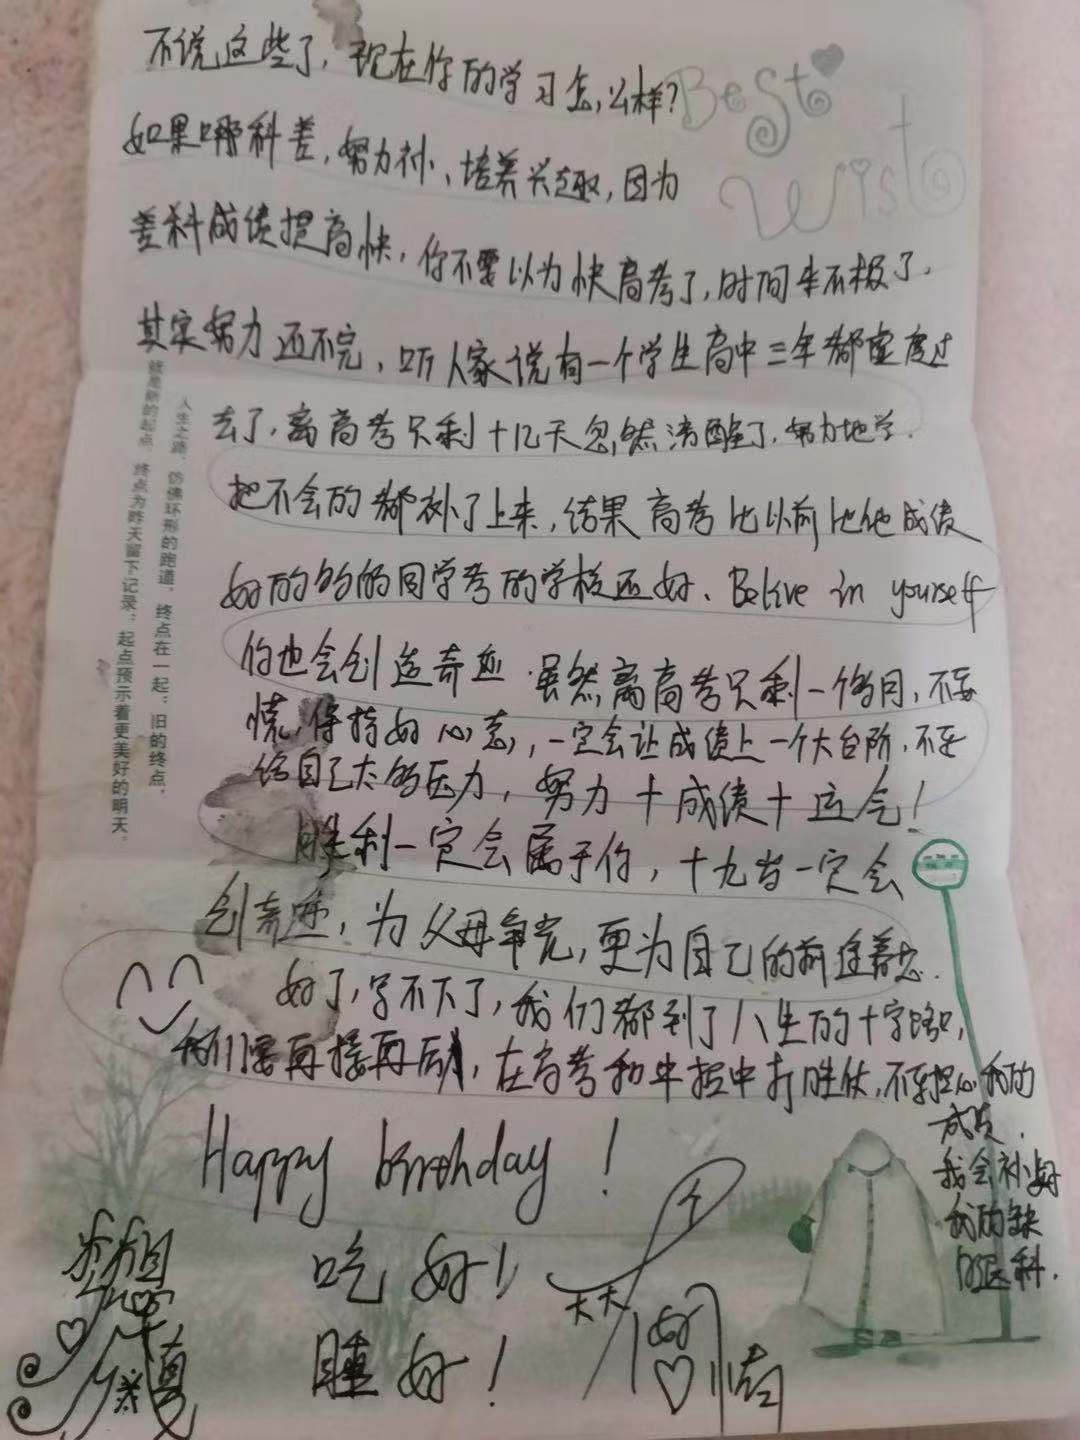 不说这些了，现在你的学习怎么样？
Best
Wish
如果哪科差，努力补、培养兴趣，因为
差科成绩提高快，你不要以为快高考了，时间来不极了，
其实努力还不完，听人家说有一个学生高中三年都虚度过
去了，离高考只剩十几天忽然清醒了，努力地学．
把不会的都补了上来，结果高考比以前比他成绩
好的多的同学考的学校还好、Belive in yourself
你也会创造奇迹．虽然离高考只剩一个多月，不要
慌，保持好心态，一定会让成绩上一个大台阶，不要
给自己太多压力，努力十成绩十运气！
胜利一定会属于你，十九岁一定会
创奇迹，为父母争光，更为自己的前途着想．
好了，写不下了，我们都到了人生的十字路口，
我们要再接再厉，在高考和中招中打胜仗，不要担心我的
成绩．
我会补好
我的缺
的医科．
Happy birthday！
吃好！
睡好！
天天
个
好
人生之路，仿佛环形的跑道，终点在一起：旧的终点，
就是新的起点，终点为昨天留下记录；起点预示着更美好的明天。